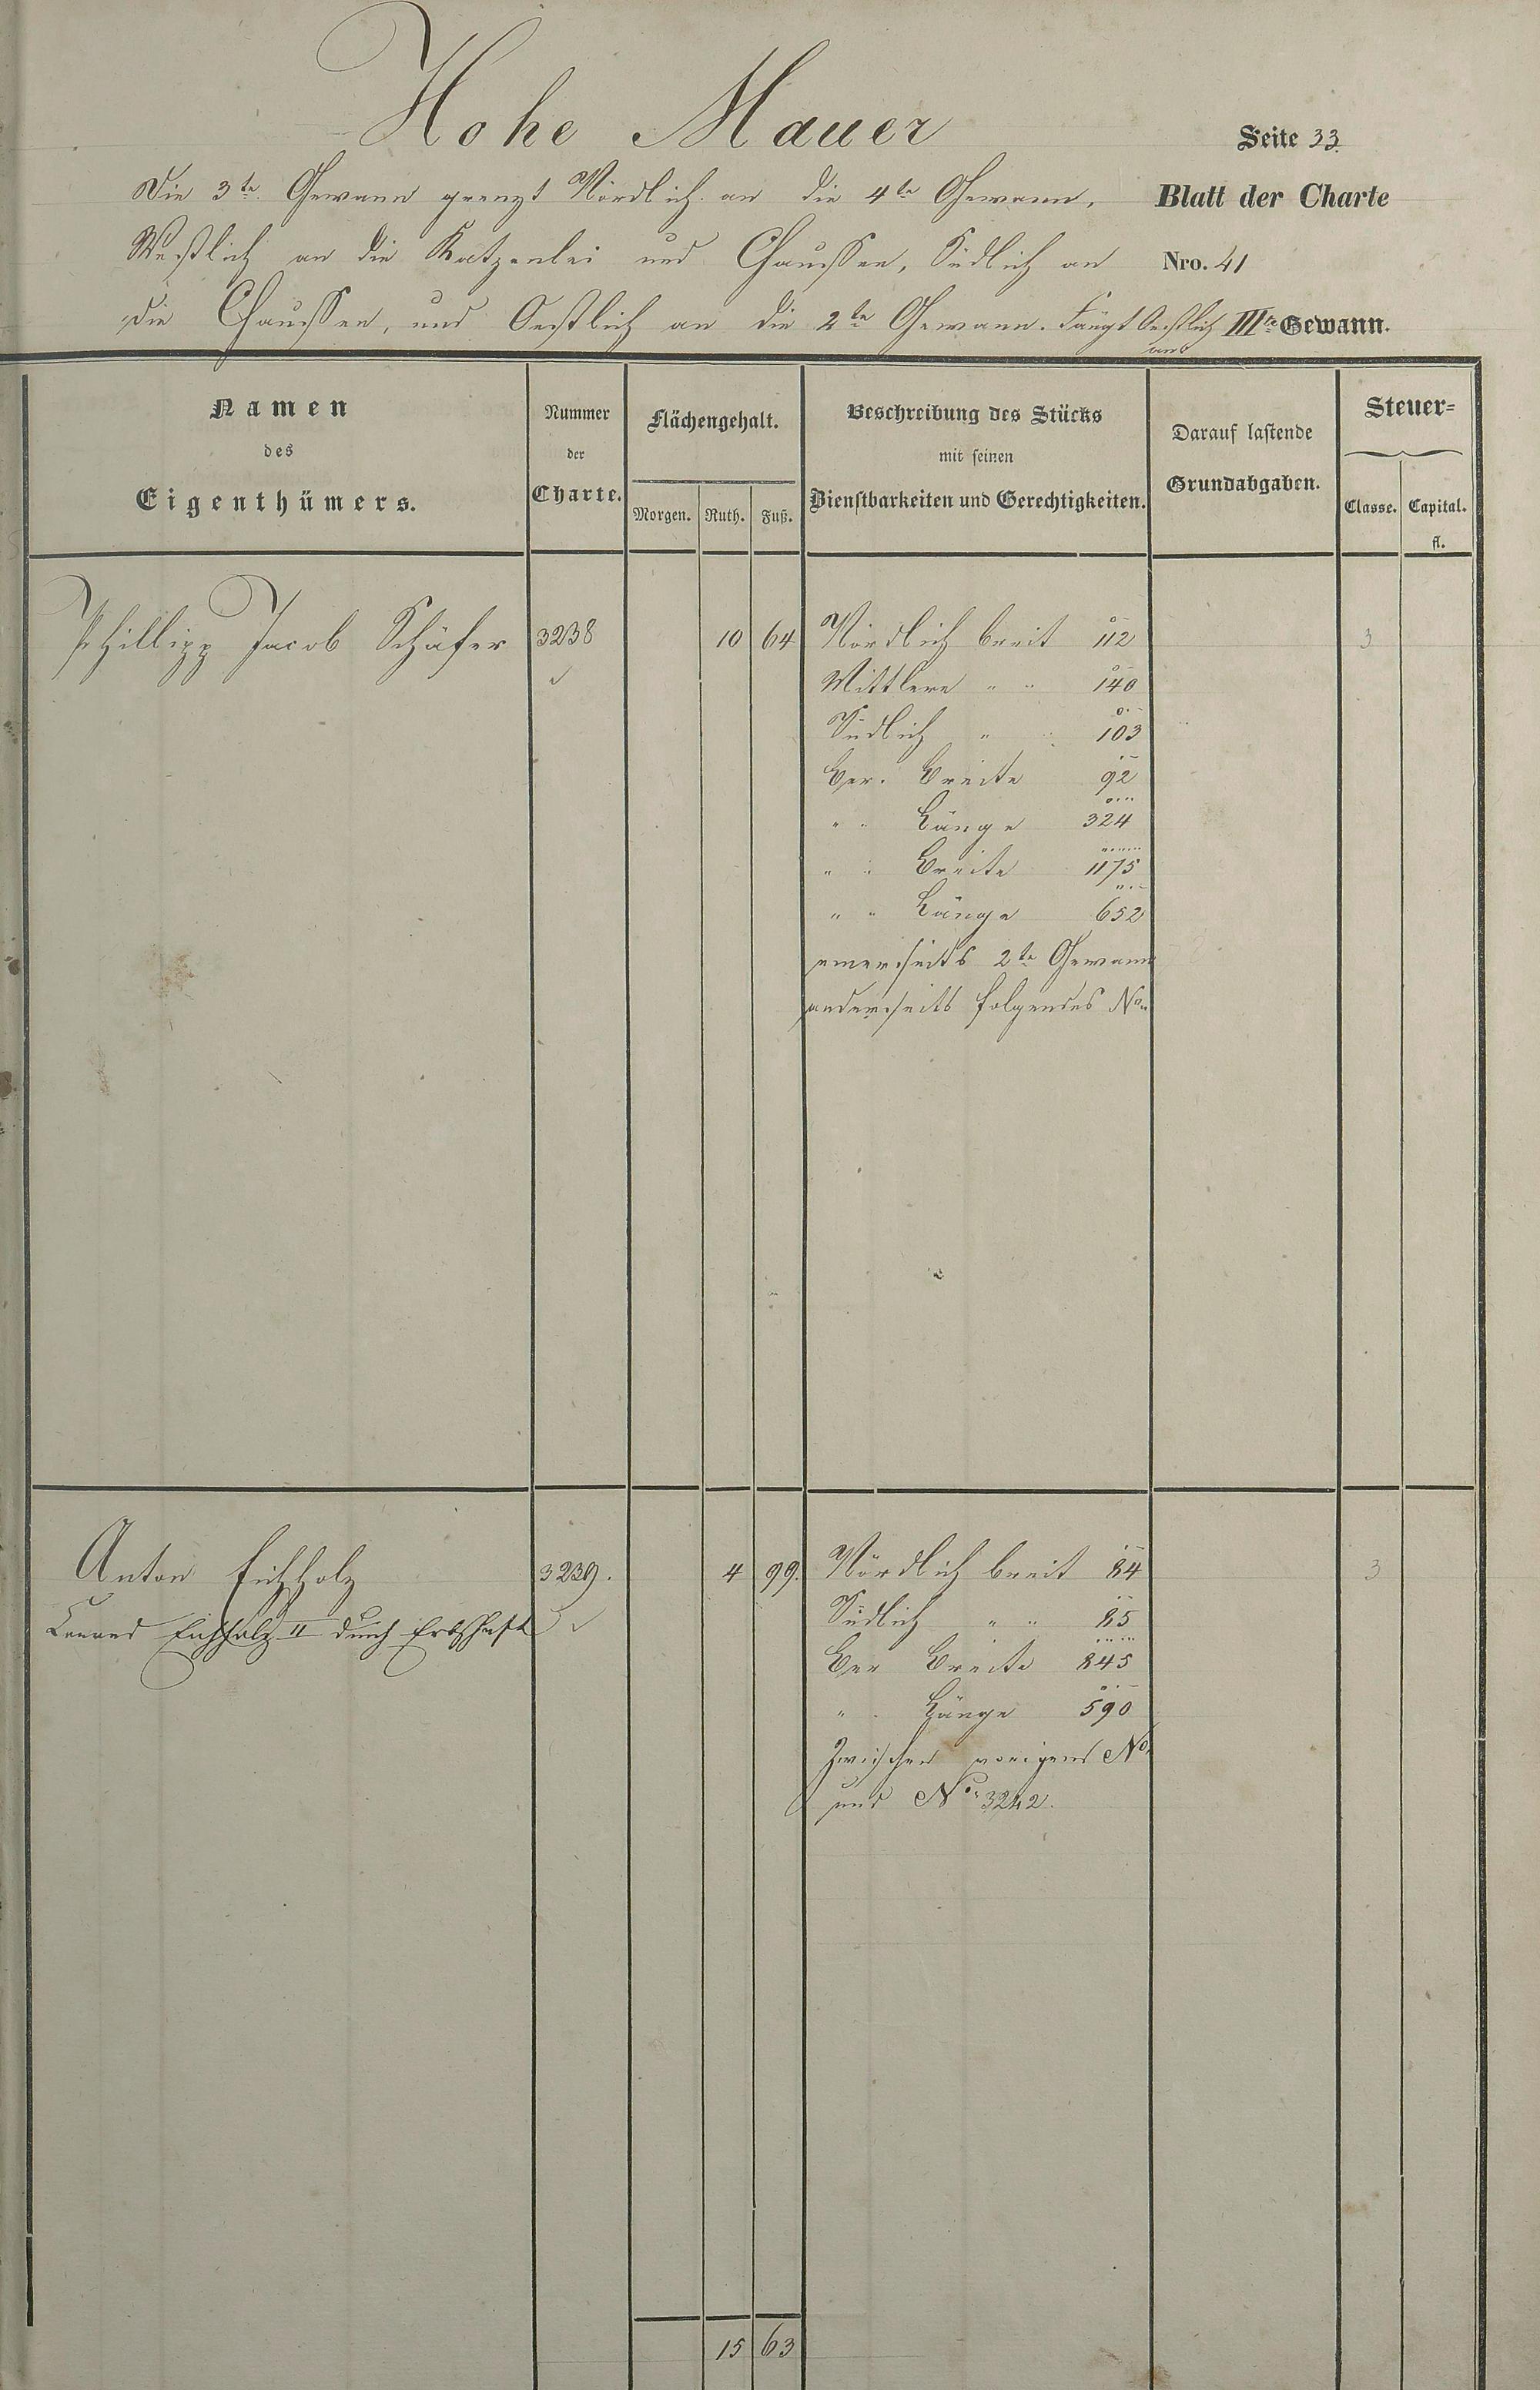 Hohe Mauer
Seite 33.
Die 3te Gewann grenzt Nördlich an die 4te Gewann,
Blatt der Charte
Westlich an die Katzenlei und Chaussee, Südlich an
Nro. 41
die Chaussee, und Oestlich an die 2te Gewann. Fängt Oestlich
an
IIIte Gewann.
Namen
des
Eigenthümers.
Nummer
der
Charte.
Flächengehalt.
Morgen. Ruth. Fuß.
Beschreibung des Stücks
mit seinen
Dienstbarkeiten und Gerechtigkeiten.
Darauf lastende
Grundabgaben.
Steuer=
Classe. Capital.
fl.
Phillipp Jacob Schäfer 3238 10 64 Nördlich breit 112 3
Mittlere " " 140
Südlich " " 103
Ber. Breite 92
" " Länge 324
" " Breite 1175
" " Länge 652
einerseits 2te Gewann
anderseits folgendes No.
Anton Eichholz 3239. 4 99. Nördlich breit 84 3
Conrad Eichholz II durch Erbschaft
Südlich " " 85
Ber Breite 845
" " Länge 590
Zwischen voriges No.
und No. 3242.
15 63